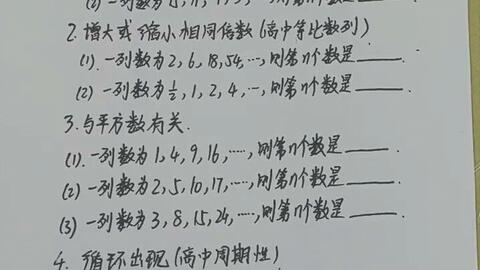 2. 增大或缩小相同倍数(高中等比数列)
(1). 一列数为2,6,18,54,…,则第n个数是____.
(2) 一列数为½,1,2,4,…,则第n个数是____.
3. 与平方数有关.
(1). 一列数为1,4,9,16,……,则第n个数是____.
(2) 一列数为2,5,10,17,……,则第n个数是____.
(3) 一列数为3,8,15,24,……,则第n个数是____.
4. 循环出现(高中周期性)